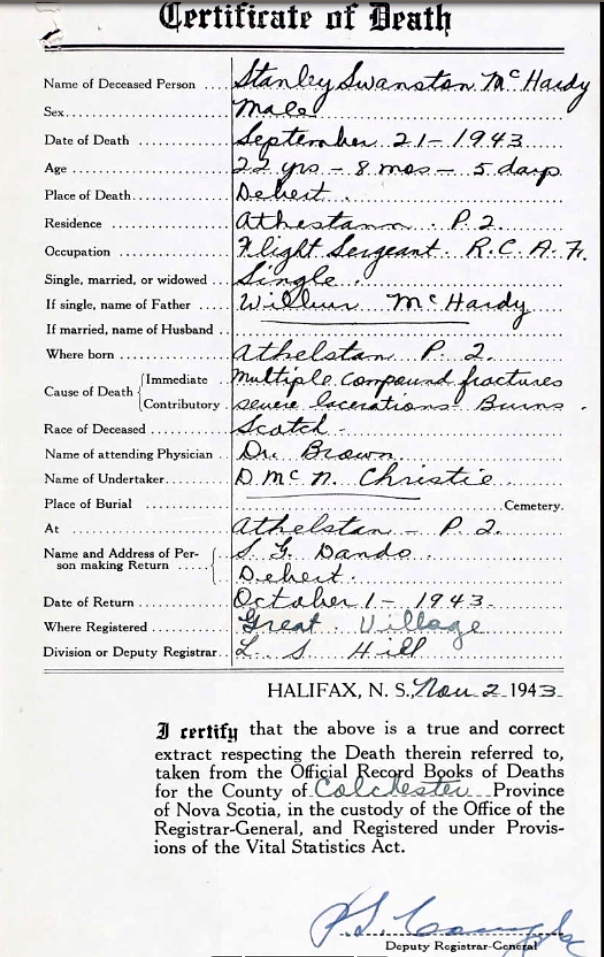 Certificate of Death
Name of Deceased Person .... Stanley Swanston McHardy
Sex.... Male
Date of Death .... September 21 - 1943
Age .... 22 yrs - 8 mos - 5 days
Place of Death.... Debert.
Residence .... Athelstann. P. 2.
Occupation .... Flight Sergeant. R.C.A.F.
Single, married, or widowed ... Single.
If single, name of Father .... Wilbur McHardy
If married, name of Husband ....
Where born .... Athelstan P. 2.
Cause of Death { Immediate .. Multiple compound fractures
Contributory . severe lacerations - Burns.
Race of Deceased .... Scotch -
Name of attending Physician .. Dr. Brown.
Name of Undertaker.... D. McN. Christie.
Place of Burial .... Cemetery.
At .... Athelstan - P. 2.
Name and Address of Per- S. G. Dando.
son making Return ..... Debert.
Date of Return .... October 1 - 1943.
Where Registered .... Great Village
Division or Deputy Registrar.. L. S. Hill
HALIFAX, N. S., Nov 2 1943
I certify that the above is a true and correct
extract respecting the Death therein referred to,
taken from the Official Record Books of Deaths
for the County of Colchester Province
of Nova Scotia, in the custody of the Office of the
Registrar-General, and Registered under Provis-
ions of the Vital Statistics Act.
Deputy Registrar-General